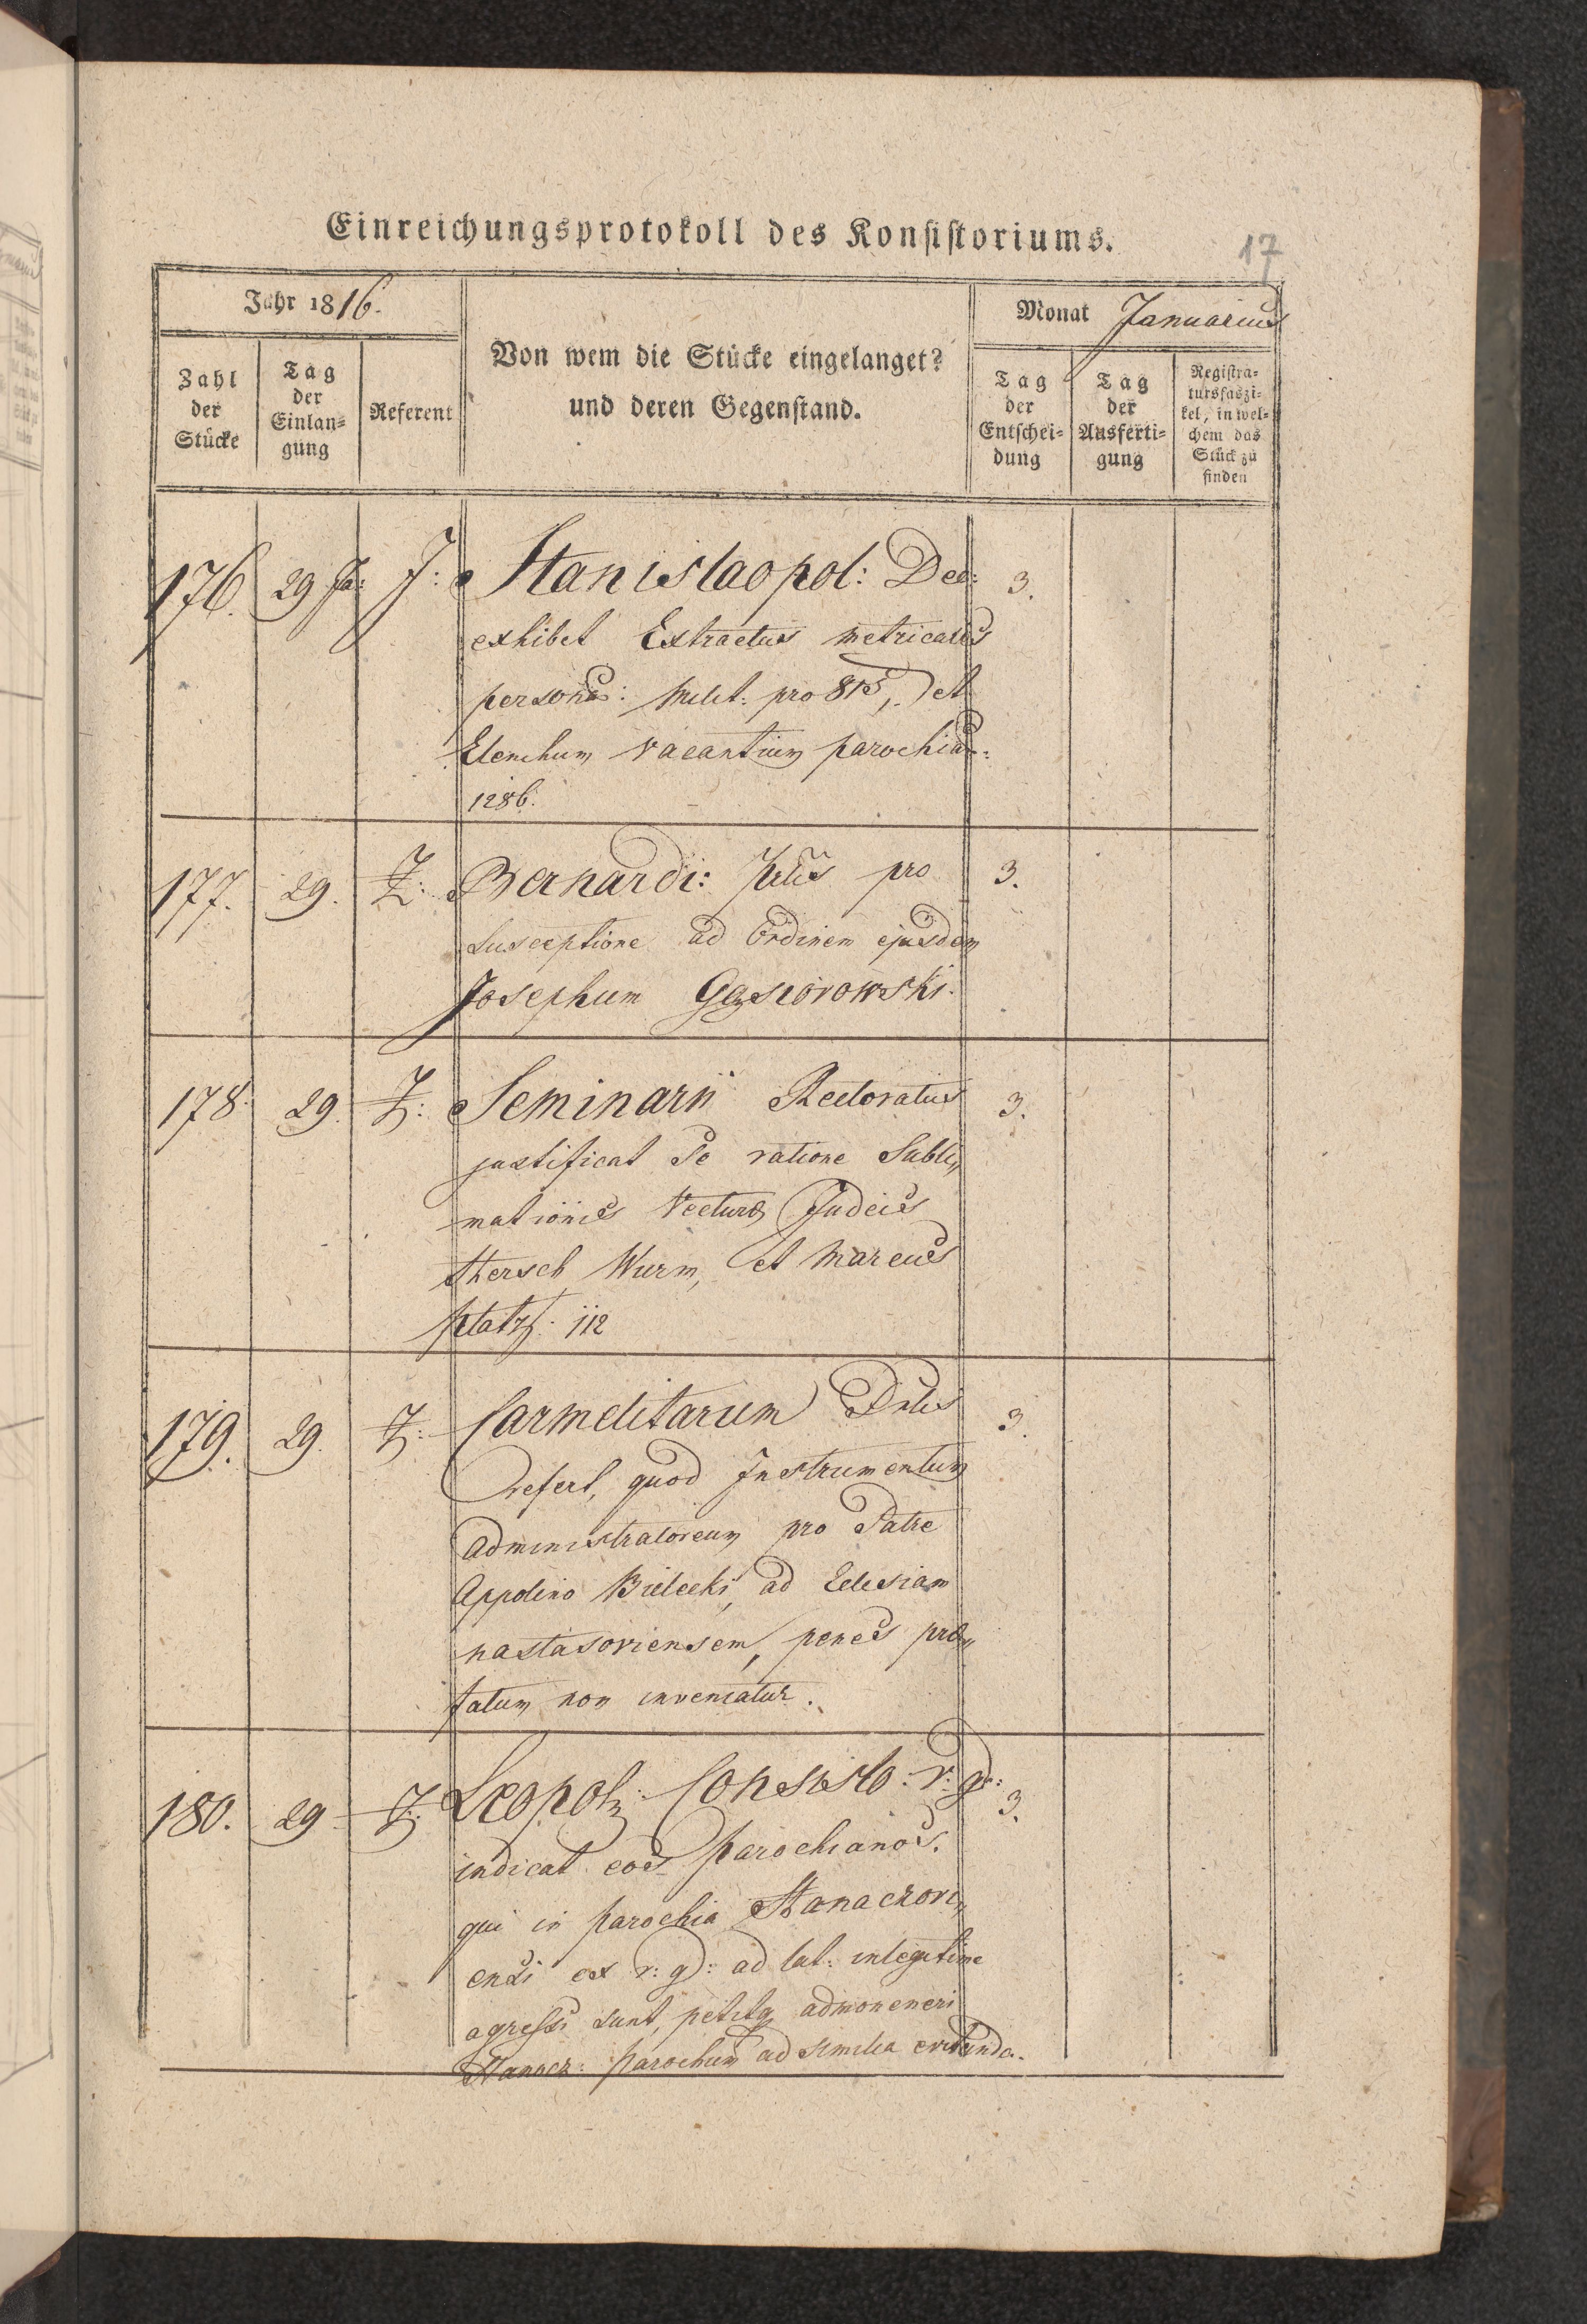 Einreichungsprotokoll des Konsistoriums.
17
Jahr 1816.
Monat Januarius
Zahl der Stücke
Tag der Einlangung
Referent
Von wem die Stücke eingelanget?
und deren Gegenstand.
Tag der Entscheidung
Tag der Ausfertigung
Registratursfaszikel, in welchem das Stück zu finden
176. 29 Ja: J: Stanislaopol: Dec: 3.
exhibet Extractus metricales
person: milit: pro 815, et
Elenchum vacantium parochia:
1286.
177. 29. Z: Bernardi: pro 3.
susceptione ad Ordinem ejusdem
Josephum Gąsiorowski.
178 29. Z: Seminarii Rectoratus 3.
justificat se ratione Subli„
nationis Vecturæ Judeis
Hersch Wurm, et Marcus
Platz: 112
179. 29. Z: Carmelitarum 3.
refert, quod Instrumentum
administratoreum pro Patre
Appolino Bielecki, ad Eclesiam
nastasoviensem, penes præ„
fatum non inveniatur.
180. 29 Z: Leopol: Consisto: r: g: 3.
indicat eos Parochianos.
qui in parochia Kanaczovi„
ensi ex r: g: ad lat: inlegitime
agressi sunt, petitq admoneneri
parochum ad similia evitanda.